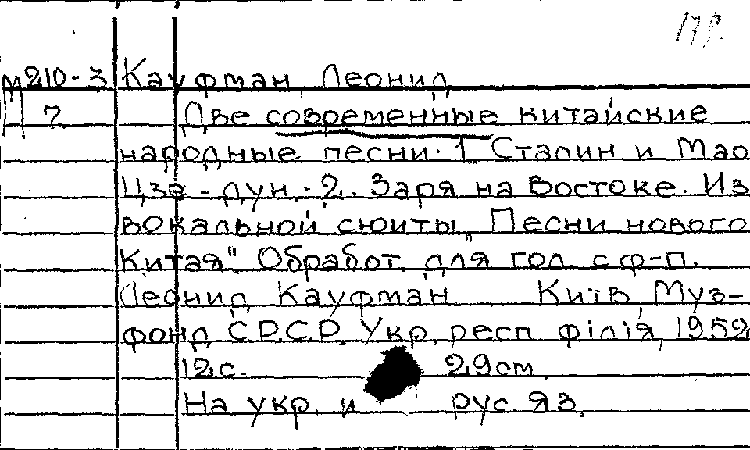 17 р.
М210-3 Кауфман, Леонид
Д 7 Две современные китайские
народные песни. 1. Сталин и Мао
Цзэ-дун. 2. Заря на Востоке. Из
вокальной сюиты „Песни нового
Китая" Обработ. для гол. с ф-п.
Леонид Кауфман Київ, Муз-
фонд С.Р.С.Р. Укр. респ. філія, 1952
12 с. 29 см.
На укр. и рус. яз.